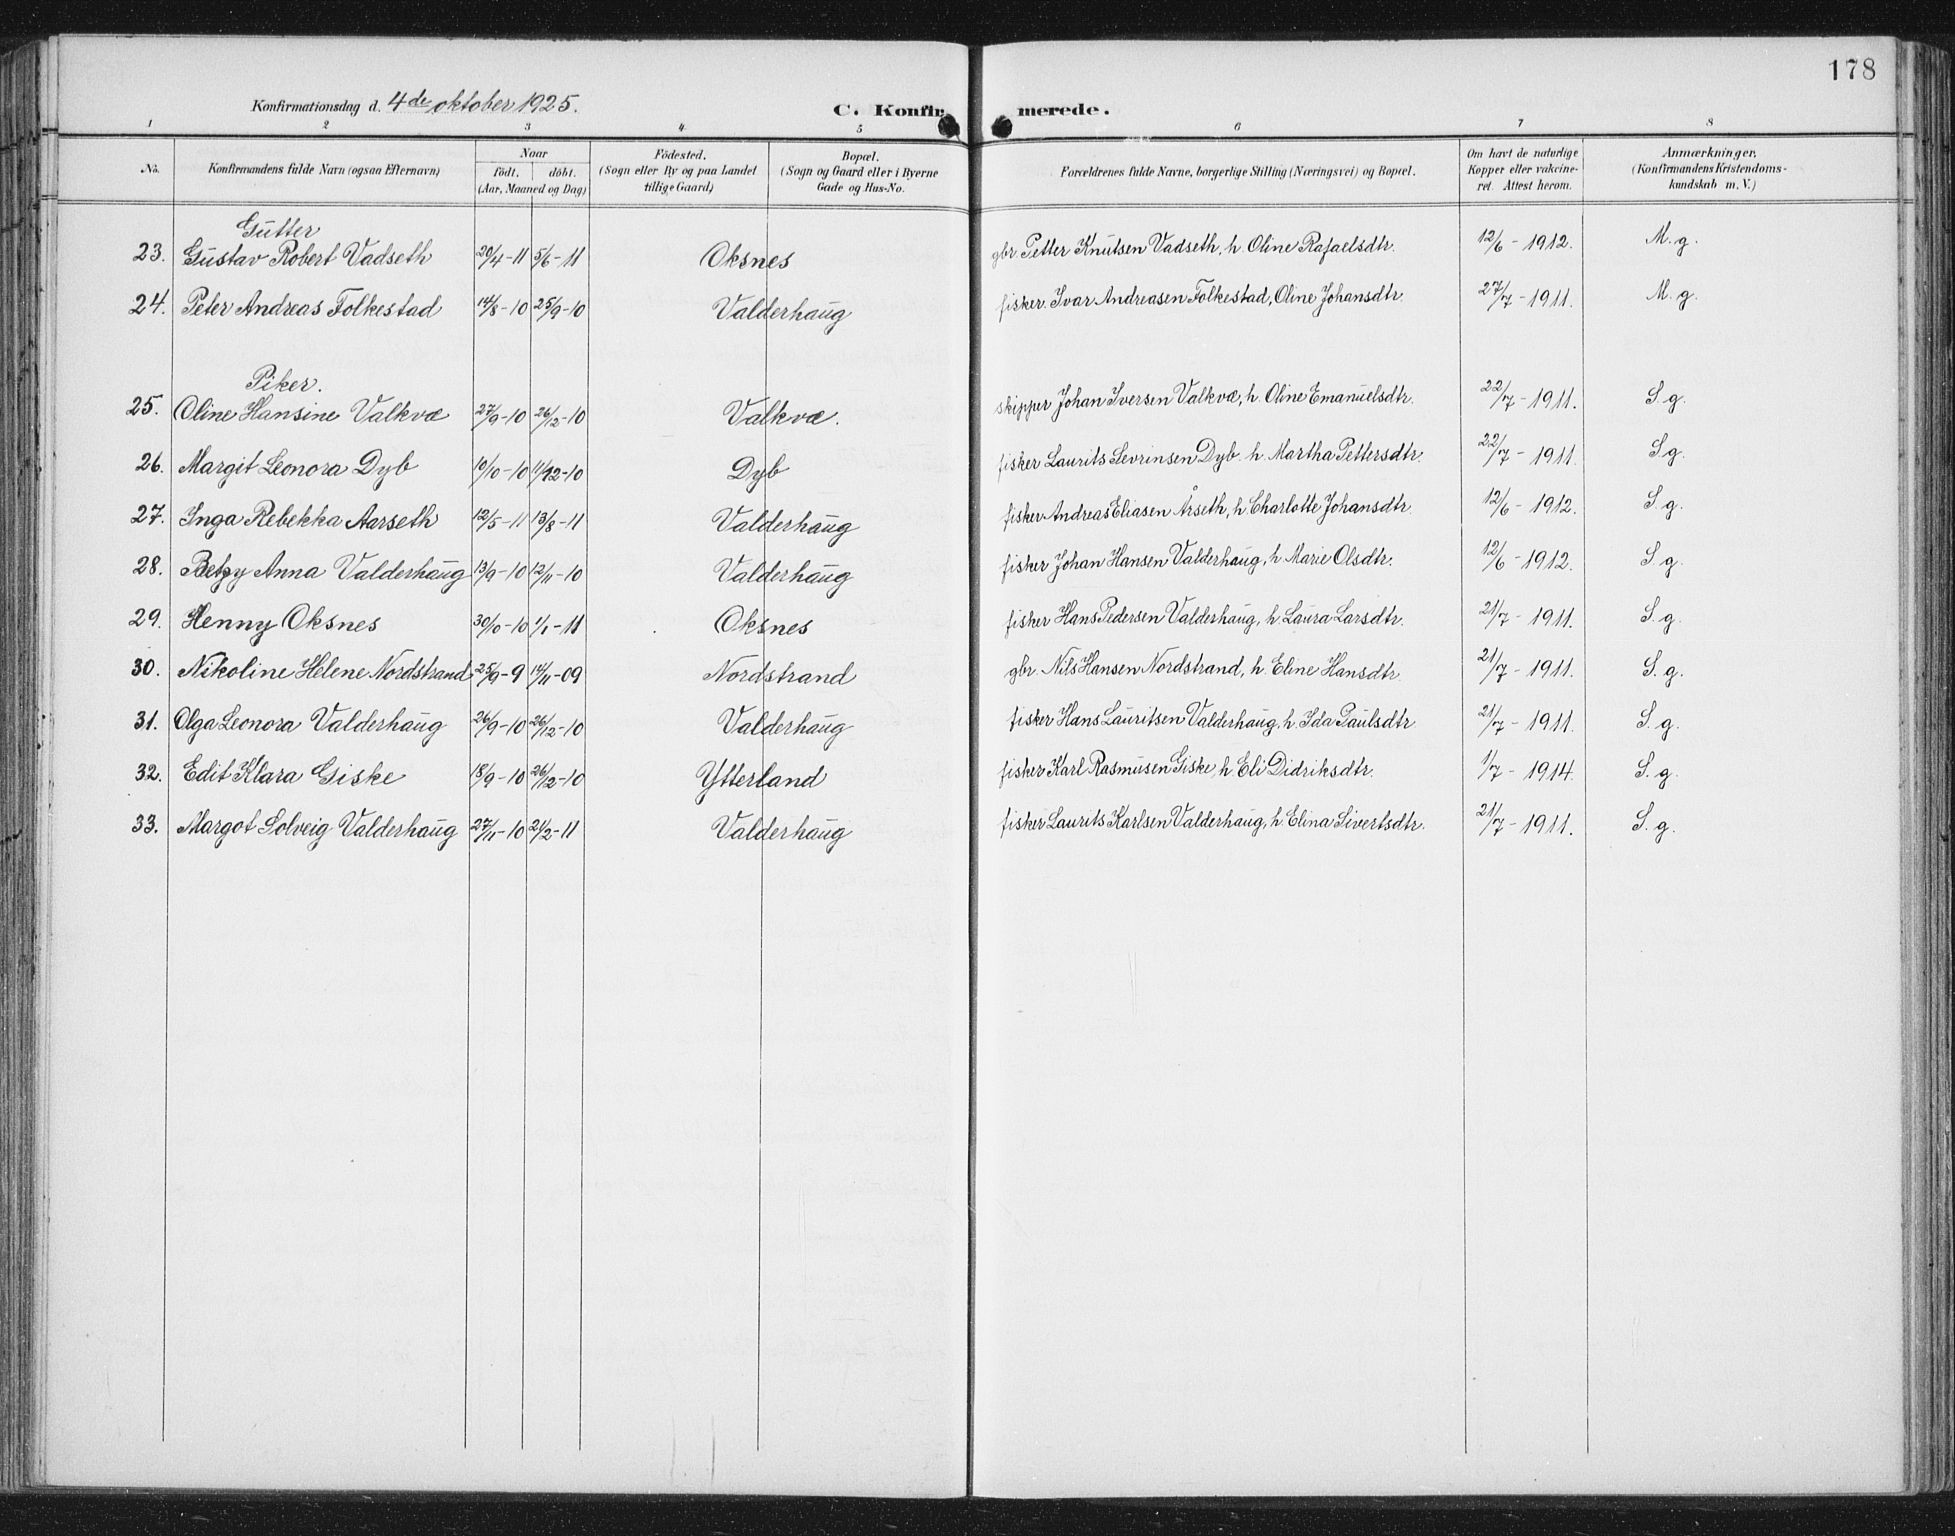 178
Konfirmationsdag d. 4de oktober 1925.
C. Konfirmerede.
1 2 3 4 5 6 7 8
No. Konfirmandens fulde Navn (ogsaa Efternavn) Naar født. døbt. (Aar, Maaned og Dag) Fødested. (Sogn eller By og paa Landet tillige Gaard) Bopæl. (Sogn og Gaard eller i Byerne Gade og Hus-No. Forældrenes fulde Navne, borgerlige Stilling (Næringsvei) og Bopæl. Om havt de naturlige Kopper eller vakcineret. Attest herom. Anmærkninger. (Konfirmandens Kristendomskundskab m. V.)
Gutter
23. Gustav Robert Vadseth 20/4-11 5/6-11 Oksnes gbr. Petter Knutsen Vadseth, h. Oline Rafaelsdtr. 12/6-1912. M. g.
24. Peter Andreas Folkestad 14/8-10 25/9-10 Valderhaug fisker. Ivar Andreasen Folkestad, Oline Johansdtr. 27/7-1911. M. g.
Piker.
25. Oline Hansine Valkvæ 27/9-10 26/12-10 Valkvæ. skipper Johan Iversen Valkvæ, h Oline Emanuelsdtr. 22/7-1911. S g.
26. Margit Leonora Dyb 10/10-10 11/12-10 Dyb fisker Laurits Sevrinsen Dyb. h. Martha Pettersdtr. 22/7-1911. S g.
27. Inga Rebekka Aarseth 12/5-11 13/8-11 Valderhaug fisker Andreas Eliasen Årseth, h Charlotte Johansdtr. 12/6-1912. S. g.
28. Betzy Anna Valderhaug 13/9-10 12/11-10 Valderhaug fisker Johan Hansen Valderhaug, h Marie Olsdtr. 12/6-1912. S. g.
29. Henny Oksnes 30/10-10 1/1-11 Oksnes fisker Hans Pedersen Valderhaug, h. Laura Larsdtr. 21/7-1911. S. g.
30. Nikoline Helene Nordstrand 25/9-9 14/11-09 Nordstrand gbr. Nils Hansen Nordstrand, h. Eline Hansdtr 21/7-1911. S. g.
31. Olga Leonora Valderhaug 26/9-10 26/12-10 Valderhaug fisker Hans Lauritsen Valderhaug, h. Ida Paulsdtr 21/7-1911. S. g.
32. Edit Klara Giske 18/9-10 26/12-10 Ytterland fisker Karl Rasmusen Giske, h. Eli Didriksdtr. 1/7-1914. S. g.
33. Margot Solveig Valderhaug 27/11-10 2/2-11 Valderhaug fisker Laurits Karlsen Valderhaug, h. Elina Sivertsdtr. 21/7-1911. S. g.